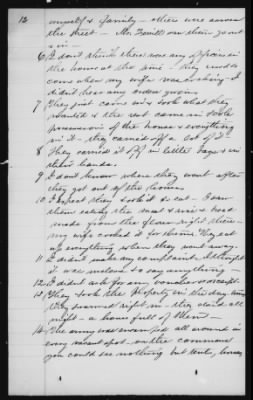 12
myself & family – others were across
the street – Mr. Ferrill saw them go out
& in –
6 I don't think there was any officer in
the house at the time – they would
come when my wife was cooking – I
did not hear any orders given
7 They just came in & took what they
wanted & the rest came in & took
possession of the house & everything
in it – they carried off a lot of it
8 They carried it off in little bags & in
their hands.
9 I don't know where they went after
they got out of the house
10 I expect they took it to eat – I saw
them eating the meat & rice & bread
made from the flour right there –
my wife cooked it for them. They eat
up everything when they went away.
11 I didn't make any complaint. I thought
it was useless to say anything –
12 I did not ask for any voucher or receipt
13 They took the property in the day time
They swarmed right in – they staid all
night – a house full of them –
14 The army was camped all around in
every vacant spot – on the commons
you could see nothing but tents, horses